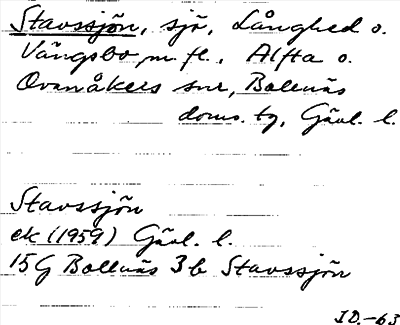 Stavssjön, sjö, Långhed o.
Vängsbo m. fl., Alfta o.
Ovanåkers snr, Bollnäs
doms. tg, Gävl. l.
Stavssjön
ek (1959) Gävl. l.
15G Bollnäs 3b Stavssjön
I D.-63